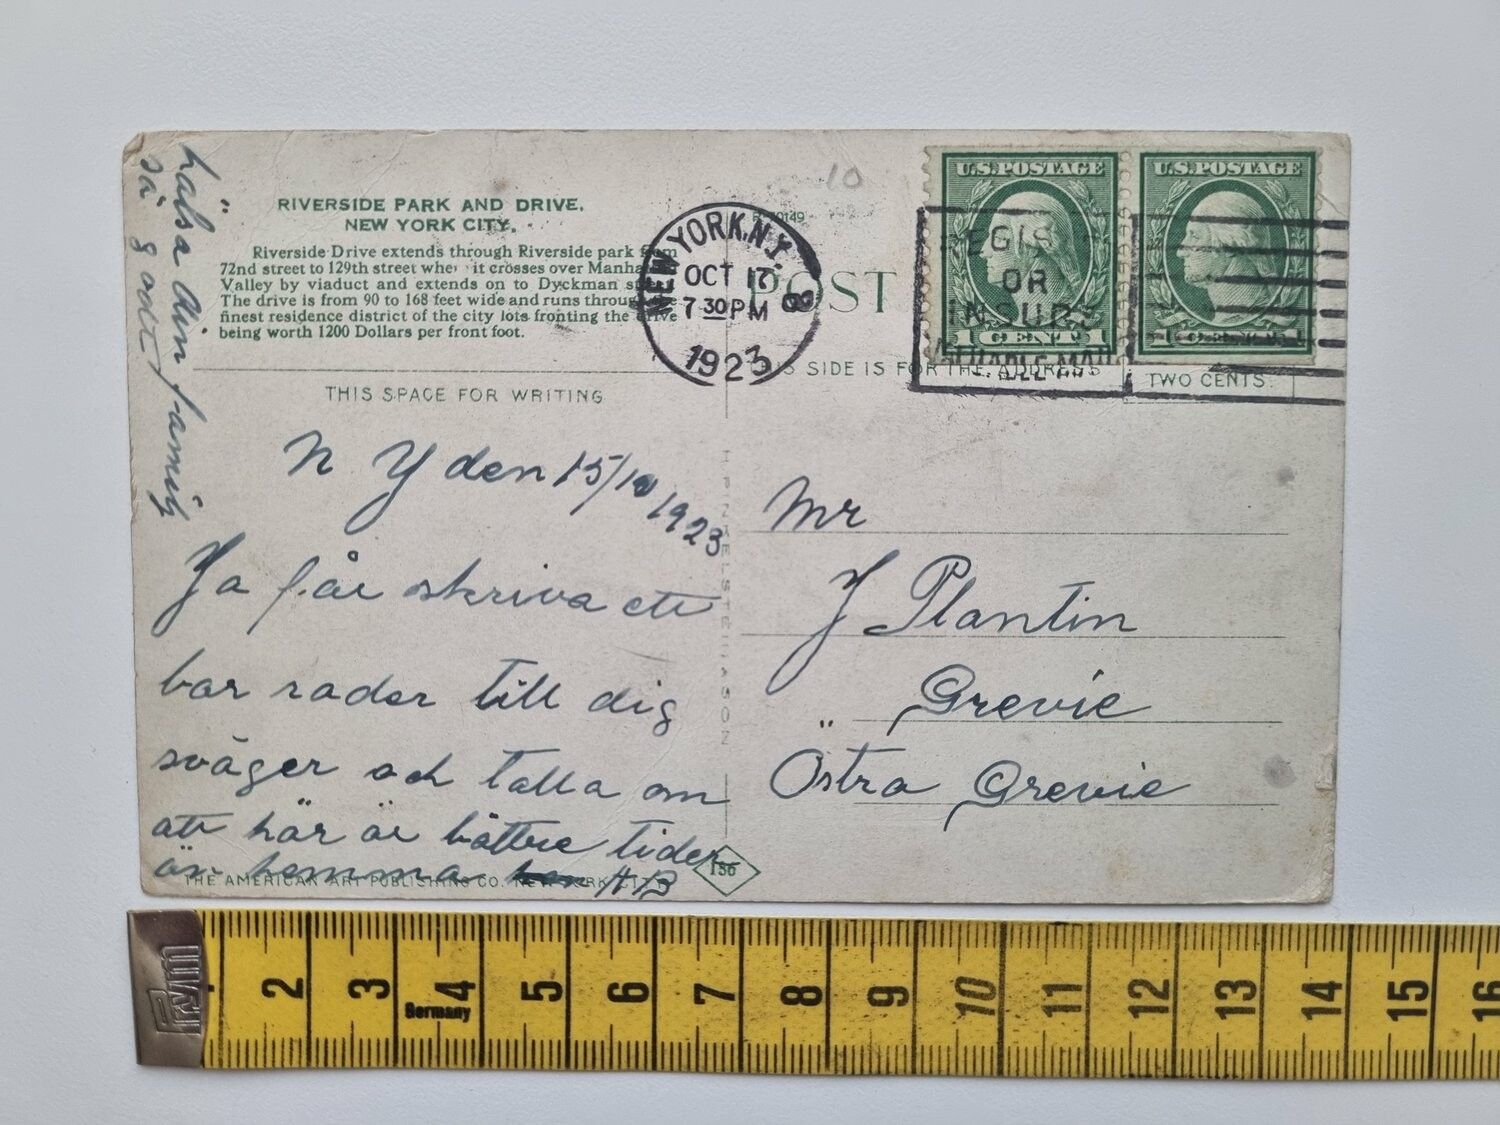 hälsa din familj
så godt
RIVERSIDE PARK AND DRIVE,
NEW YORK CITY.
Riverside Drive extends through Riverside park from
72nd street to 129th street whe it crosses over Manha
Valley by viaduct and extends on to Dyckman s
The drive is from 90 to 168 feet wide and runs through the
finest residence district of the city lots fronting the drive
being worth 1200 Dollars per front foot.
10
NEW YORK, N.Y.
OCT 17
7 30 PM
1923
POST
U.S. POSTAGE
1 CENT 1
U.S. POSTAGE
REGIS
OR
INSURE
VALUABLE MAIL
THIS SPACE FOR WRITING
THIS SIDE IS FOR THE ADDRESS
TWO CENTS.
N Y den 15/10 1923
Ja får skriva ett
bar rader till dig
svåger och talla om
att här är bättre tider
än hemma HB
Mr
J Plantin
Grevie
Östra Grevie
THE AMERICAN ART PUBLISHING CO. NEW YORK CITY
H FINKELSTEIN & SON
156
Prym
Germany
2 3 4 5 6 7 8 9 10 11 12 13 14 15 16